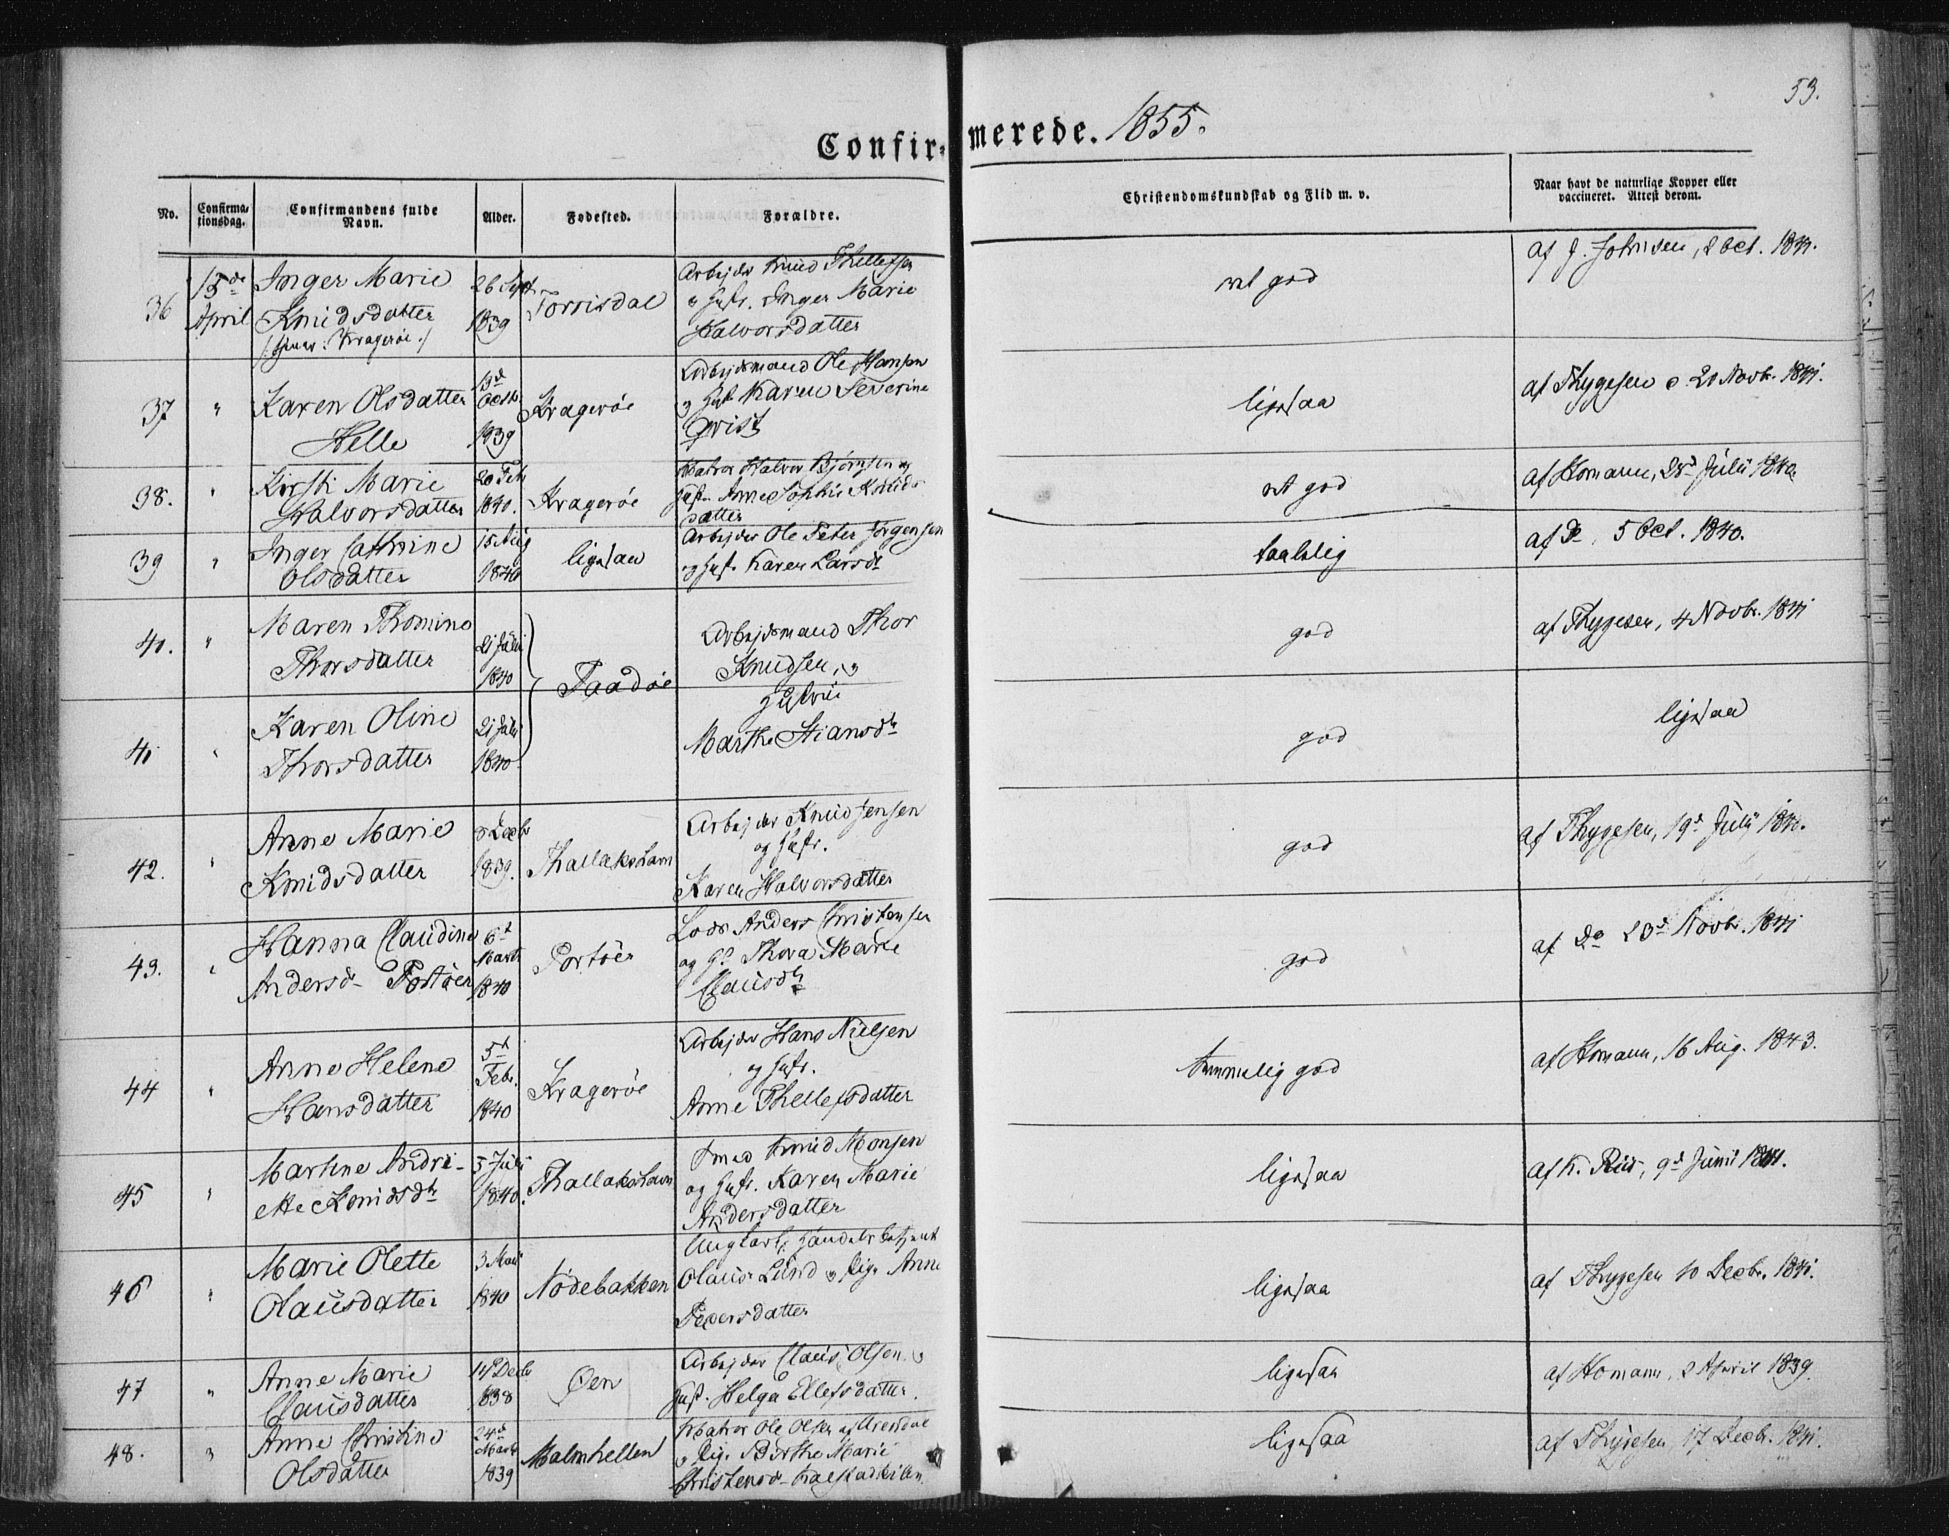 53.
Confirmerede. 1855.
No. Confirmationsdag. Confirmandens fulde Navn. Alder. Fødested. Forældre. Christendomskundskab og Flid m. v. Naar havt de naturlige Kopper eller vaccineret. Attest derom.
36 15de April Inger Marie Knudsdatter 26 Sept. 1839 Torrisdal Arbejder Knud Thellefsen og Hustr. Inger Marie Halvorsdatter
ret god
af J. Johnsen, 2 Oct. 1841.
37 " Karen Olsdatter Helle 1839 Kragerøe Arbejdsmand Ole Hansen og Hust. Karen Severine Qvist
ligesaa
af Thygesen d. 20 Novbr. 1841.
38. " Kirsti Marie Halvorsdatter 20 Feb 1840. Kragerøe Matros Halvor Bjørnsen og Hust. Anne Sophie Knudsdatter
ret god
af Homann, 25d Julii 1840.
39 " Inger Cathrine Olsdatter 15 Aug 1840 ligesaa Arbejder Ole Peter Jørgensen og Hust. Karen Larsdr
taalelig
af Do 5 Oct. 1840.
40. " Maren Thomine Thorsdatter 21 Julii 1840 Taadøe Arbejdsmand Thor Knudsen, og Hustrue Marthe Stiansdtr
god
af Thygesen, 4 Novbr. 1841
41 " Karen Oline Thorsdatter 21 Julii 1840
god
ligesaa
42. " Anne Marie Knudsdatter 8 Decbr 1839. Thallakshavn Arbejder Knud Jensen og Hustr. Karen Halvorsdatter
god
af Thygesen, 19d Julii 1841.
43. " Hanna Claudine Andersd. Portøer 6t Marts 1840 Portøer Lods Anders Christensen og H. Thora Marie Clausdtr
god
af Do 23d Novbr. 1841
44 " Anne Helene Hansdatter 5t Febr. 1840 Kragerøe Arbejder Hans Nielsen og Hustr. Anne Thellefsdatter
temmelig god
af Homann, 16 Aug. 1843.
45 " Martine Andrette Knudsdtr 5 Juli 1840. Thallakshavn Smed Knud Monsen og Hustr. Karen Marie Andersdatter
ligesaa
af K. Riis, 9d Junii 1841.
46 " Marie Olette Olausdatter 3 Mai 1840 Nødebakken Ungkarl, Handelsbetjent Olaus Lund og Pige Anne Pedersdatter
ligesaa
af Thygesen 10 Decbr. 1841.
47 " Anne Marie Clausdatter 14 Decbr 1838 Øen Arbejder Claus Olsen og Hust. Helga Ellefsdatter.
ligesaa
af Homann, 2 April 1839.
48. " Anne Christine Olsdatter 24d Marts 1839 Malmhellen Matros Ole Olsen og Pige Berthe Marie Christensd.
ligesaa
af Thygesen, 17 Decbr. 1841.